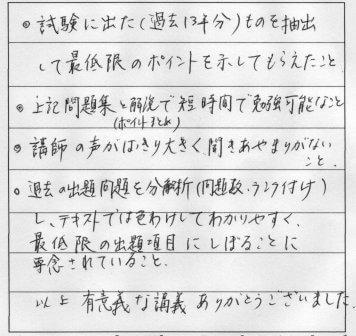 ◎試験に出た(過去13年分)ものを抽出
して最低限のポイントを示してもらえたこと
◎上記問題集と解説で短時間で勉強可能なこと
(ポイントまとめ)
◎講師の声がはっきり大きく聞きあやまりがない
こと。
○過去の出題問題を分解析(問題数・ランク付け)
し、テキストでは色わけしてわかりやすく、
最低限の出題項目にしぼることに
専念されていること。
以上 有意義な講義 ありがとうございました。